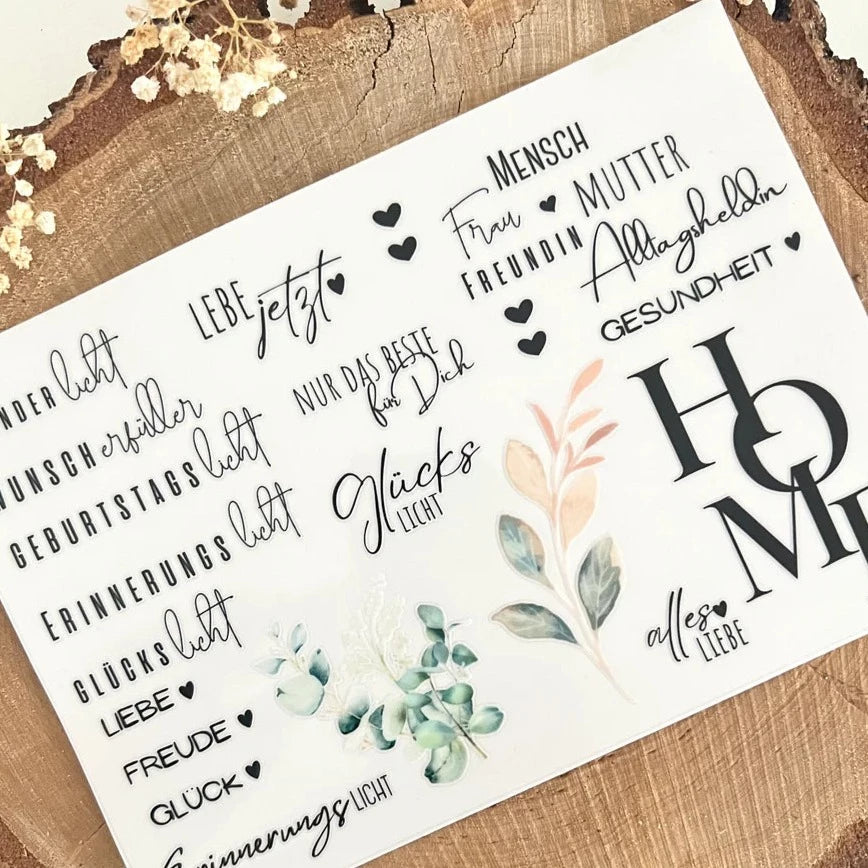 NDER licht
WUNSCH erfüller
GEBURTSTAGS licht
ERINNERUNGS licht
GLÜCKS licht
LIEBE
FREUDE
GLÜCK
Erinnerungs LICHT
LEBE jetzt
NUR DAS BESTE
für Dich
Glücks
LICHT
MENSCH
Frau MUTTER
FREUNDIN Alltagsheldin
GESUNDHEIT
HO
ME
alles
LIEBE